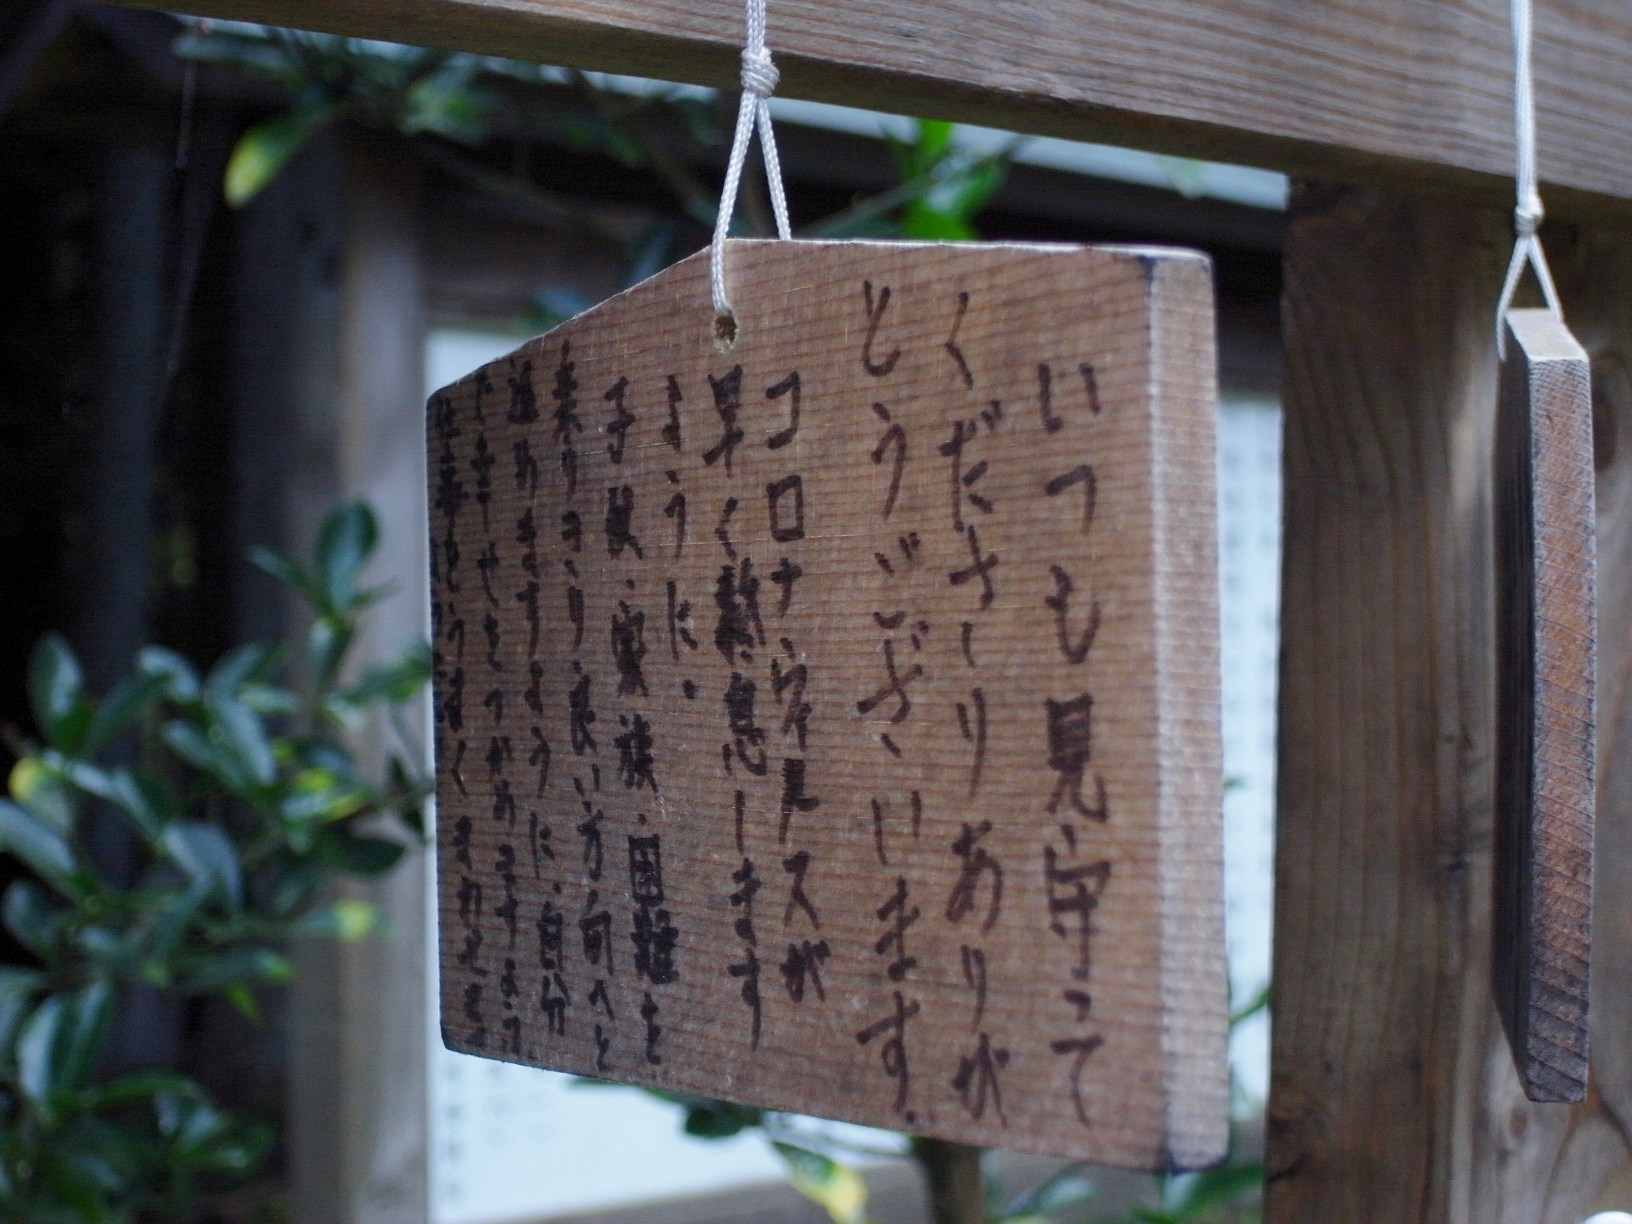 いつも見守って
くださり ありが
とうございます。
コロナウィルスが
早く終息します
ように。
子供、家族、困難を
乗りきり、良い方向へと
進めますように、自分
仕事もうまく